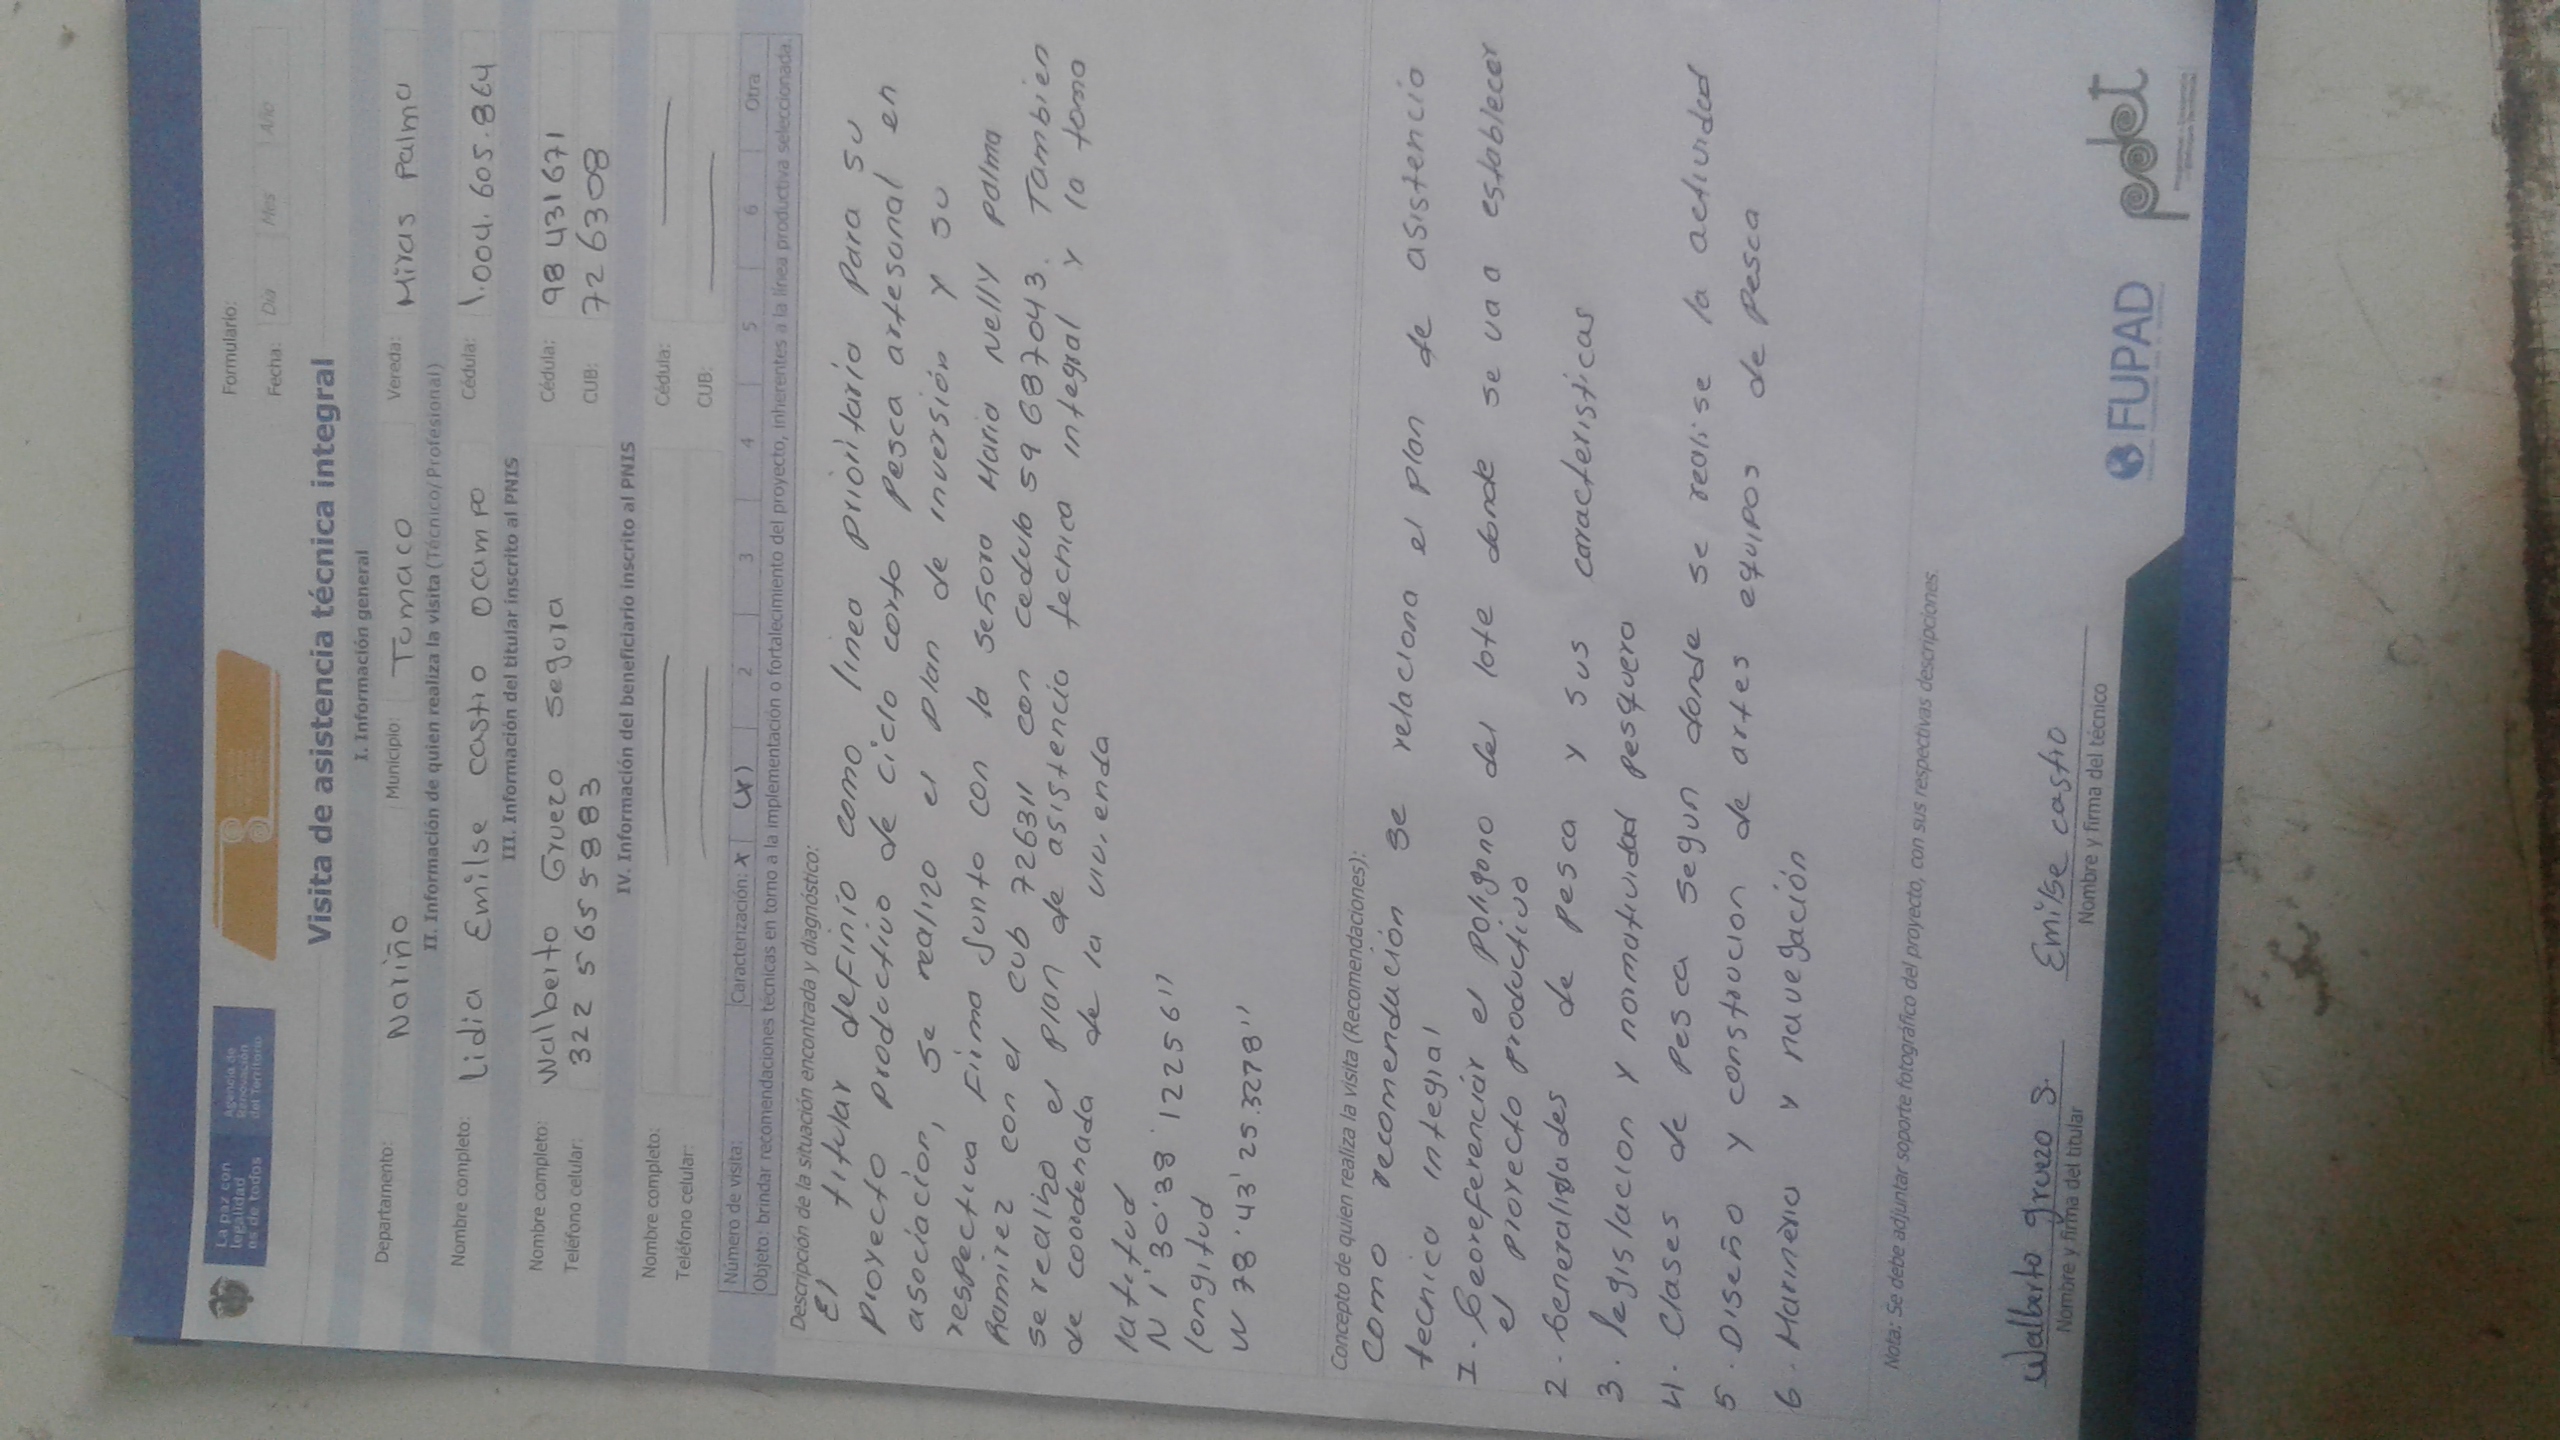 La paz con
legalidad
es de todos
Agencia de
Renovación
del Territorio
Formulario:
Fecha: Día Mes Año
Visita de asistencia técnica integral
I. Información general
Departamento: Nariño Municipio: Tumaco Vereda: Miras Palma
II. Información de quien realiza la visita (Técnico/Profesional)
Nombre completo: Lidia Emilse castro ocampo Cédula: 1.004.605.864
III. Información del titular inscrito al PNIS
Nombre completo: Walberto Gruezo segura Cédula: 98431671
Teléfono celular: 322 5655883 CUB: 726308
IV. Información del beneficiario inscrito al PNIS
Nombre completo: Cédula:
Teléfono celular: CUB:
Número de visita: Caracterización: x 2 3 4 5 6 Otra
Objeto: brindar recomendaciones técnicas en torno a la implementación o fortalecimiento del proyecto, inherentes a la línea productiva seleccionada.
Descripción de la situación encontrada y diagnóstico:
El titular definio como linea prioritaria para su
proyecto productivo de ciclo corto pesca artesanal en
asociación, se realizo el plan de inversión y su
respectiva firma Junto con la señora Maria Nelly palma
Ramirez con el cub 726311 con cedula 59687043. Tambien
se realizo el plan de asistencia tecnica integral y la toma
de coordenada de la vivienda
latitud
N 1°30'38'12256''
longitud
W 78°43'25.3278''
Concepto de quien realiza la visita (Recomendaciones):
Como recomendación se relaciona el plan de asistencia
tecnico integral
1. Georeferenciar el poligono del lote donde se va a establecer
el proyecto productivo
2. Generalidades de pesca y sus caracteristicas
3. legislacion y normatividad pesquera
4. Clases de pesca segun donde se realise la actividad
5. Diseño y construcion de artes equipos de pesca
6. Marineria y navegación
Nota: Se debe adjuntar soporte fotográfico del proyecto, con sus respectivas descripciones.
Walberto gruezo S. Emilse castro
Nombre y firma del titular Nombre y firma del técnico
FUPAD
pdet